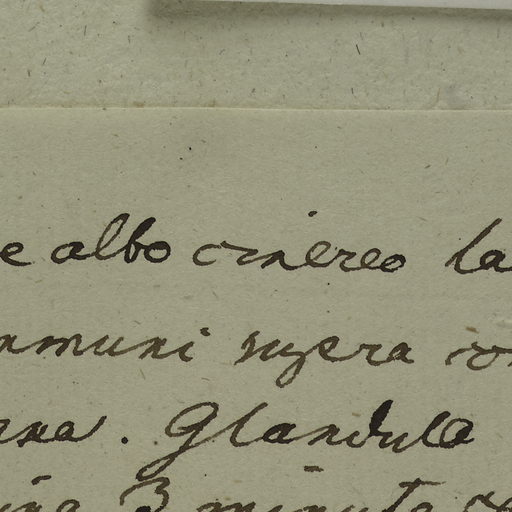 e albo cinereo la
mmuni supera
Glandula
3 minuta